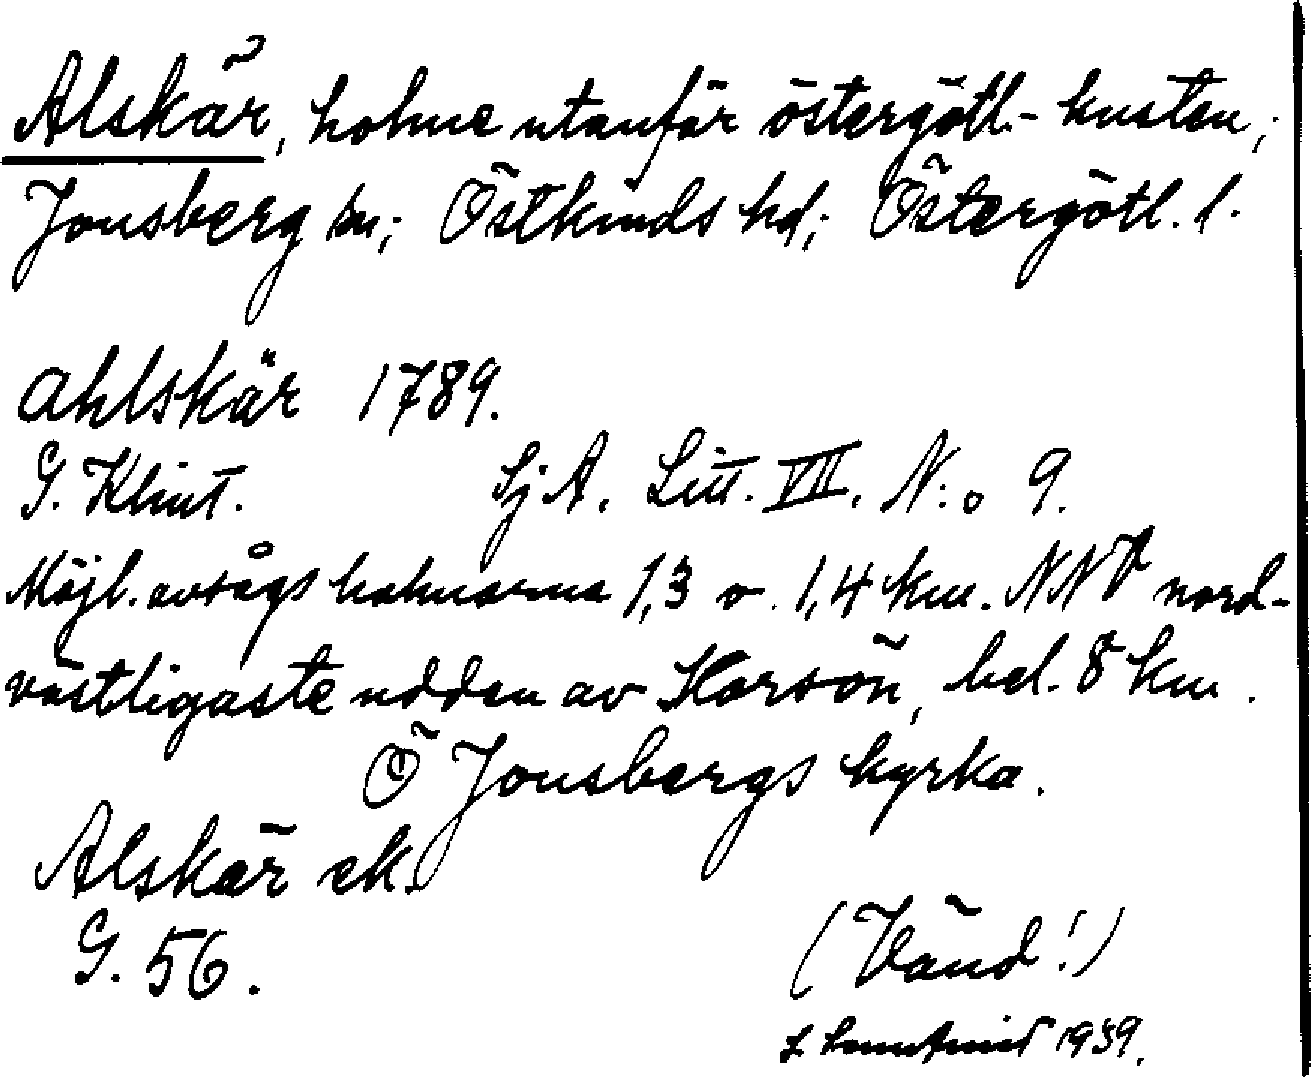 Alskär, holme utanför östergötl.-kusten;
Jonsberg sn; Östkinds hd; Östergötl. l.
Ahlskär 1789.
G. Klint. SjA. Litt. VII. N:o 9.
Möjl. avsågs holmarna 1,3 o. 1,4 km. NNV nord-
västligaste udden av Korsön, bel. 8 km.
Ö Jonsbergs kyrka.
Alskär ek.
G. 56.
(Vänd!)
1939.